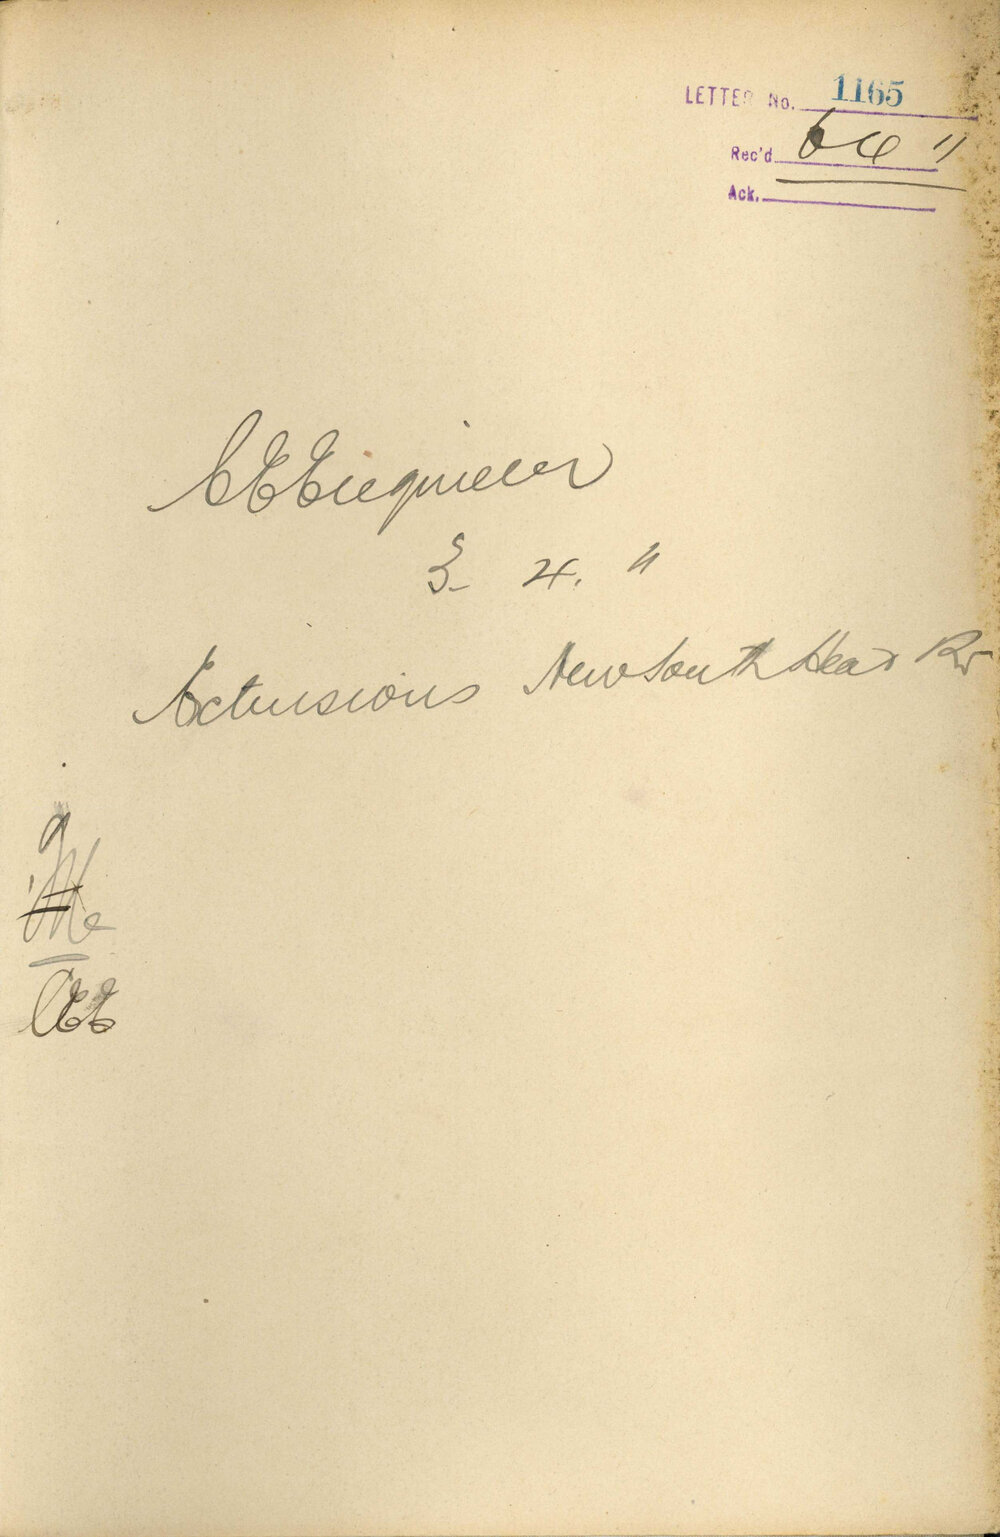 LETTER No. 1165
Rec'd 6 "
Ack.
C E Engineer
3- 4. "
Extensions New South Head Rd